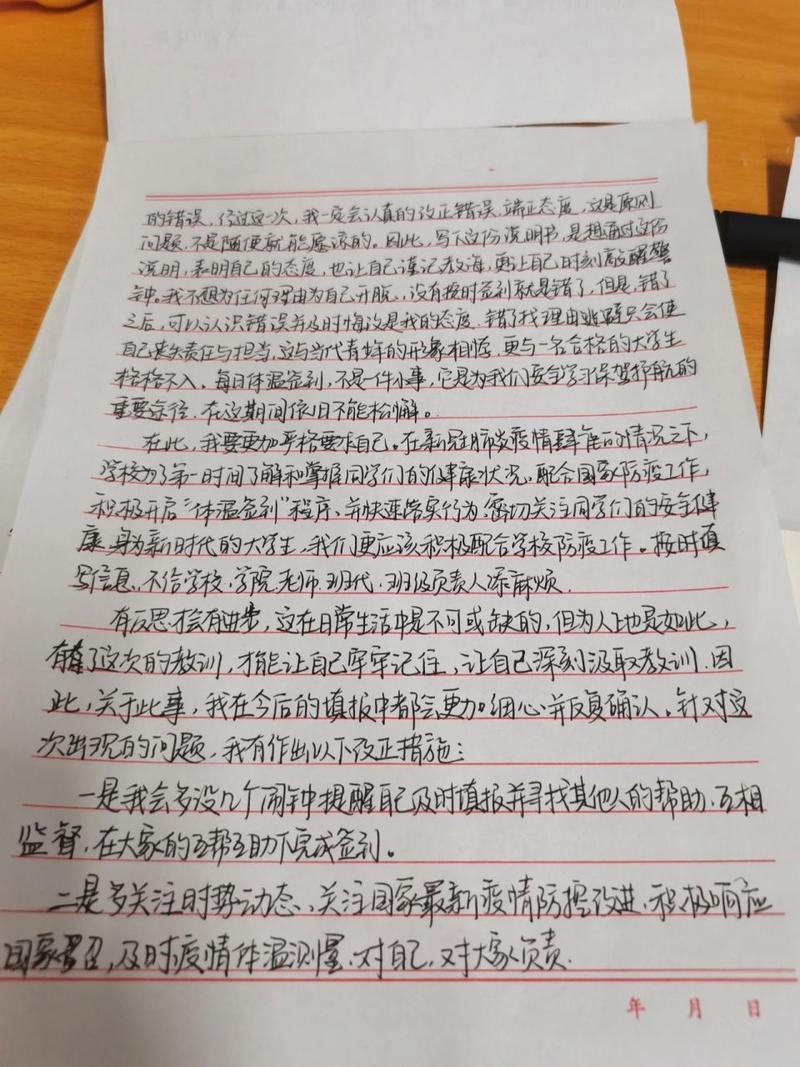 的错误，经过这一次，我一定会认真的改正错误，端正态度，这是原则
问题，不是随便就能原谅的。因此，写下这份说明书，是想通过这份
说明，表明自己的态度，也让自己谨记教诲，更让自己时刻敲醒警
钟。我不想为任何理由为自己开脱，没有按时签到就是错了，但是，错了
之后，可以认识错误并及时悔改是我的态度，错了找理由逃避只会使
自己丧失责任与担当，这与当代青年的形象相悖，更与一名合格的大学生
格格不入。每日体温签到，不是一件小事，它是为我们安全学习保驾护航的
重要途径，在这期间依旧不能松懈。
在此，我要更加严格要求自己。在新冠肺炎疫情的情况之下，
学校为了第一时间了解和掌握同学们的健康状况。配合国家防疫工作，
积极开启“体温签到”程序、并快速落实行为，密切关注同学们的安全健
康，身为新时代的大学生，我们更应该积极配合学校防疫工作。按时填
写信息、不给学校、学院、老师、班代、班级负责人添麻烦。
有反思才会有进步，这在日常生活中是不可或缺的，但为人上也是如此，
有了这次的教训，才能让自己牢牢记住，让自己深刻汲取教训。因
此，关于此事，我在今后的填报中都会更加细心并反复确认。针对这
次出现的问题，我有作出以下改正措施：
一是我会多设几个闹钟提醒自己及时填报并寻找其他人的帮助、互相
监督，在大家的互帮互助下完成签到。
二是多关注时势动态、关注国家最新疫情防控改进，积极响应
国家号召，及时疫情体温测量、对自己，对大家负责。
年 月 日